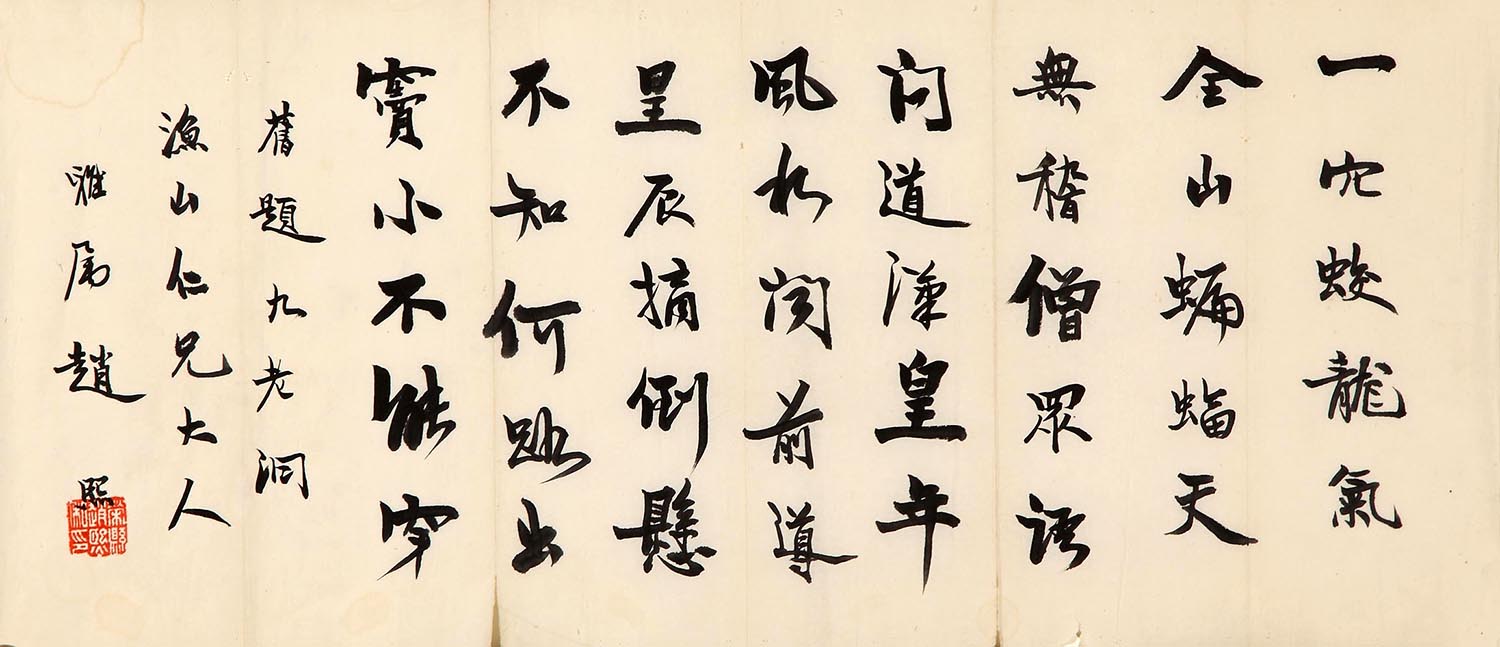 一穴蛟龍氣
全山蝙蝠天
無稽僧眾語
问道漢皇年
風閃前導
星辰摘倒懸
不知何路出
竇小不能穿
舊題九老洞
漁山仁兄大人
雅属 趙熙
榮縣趙熙私印